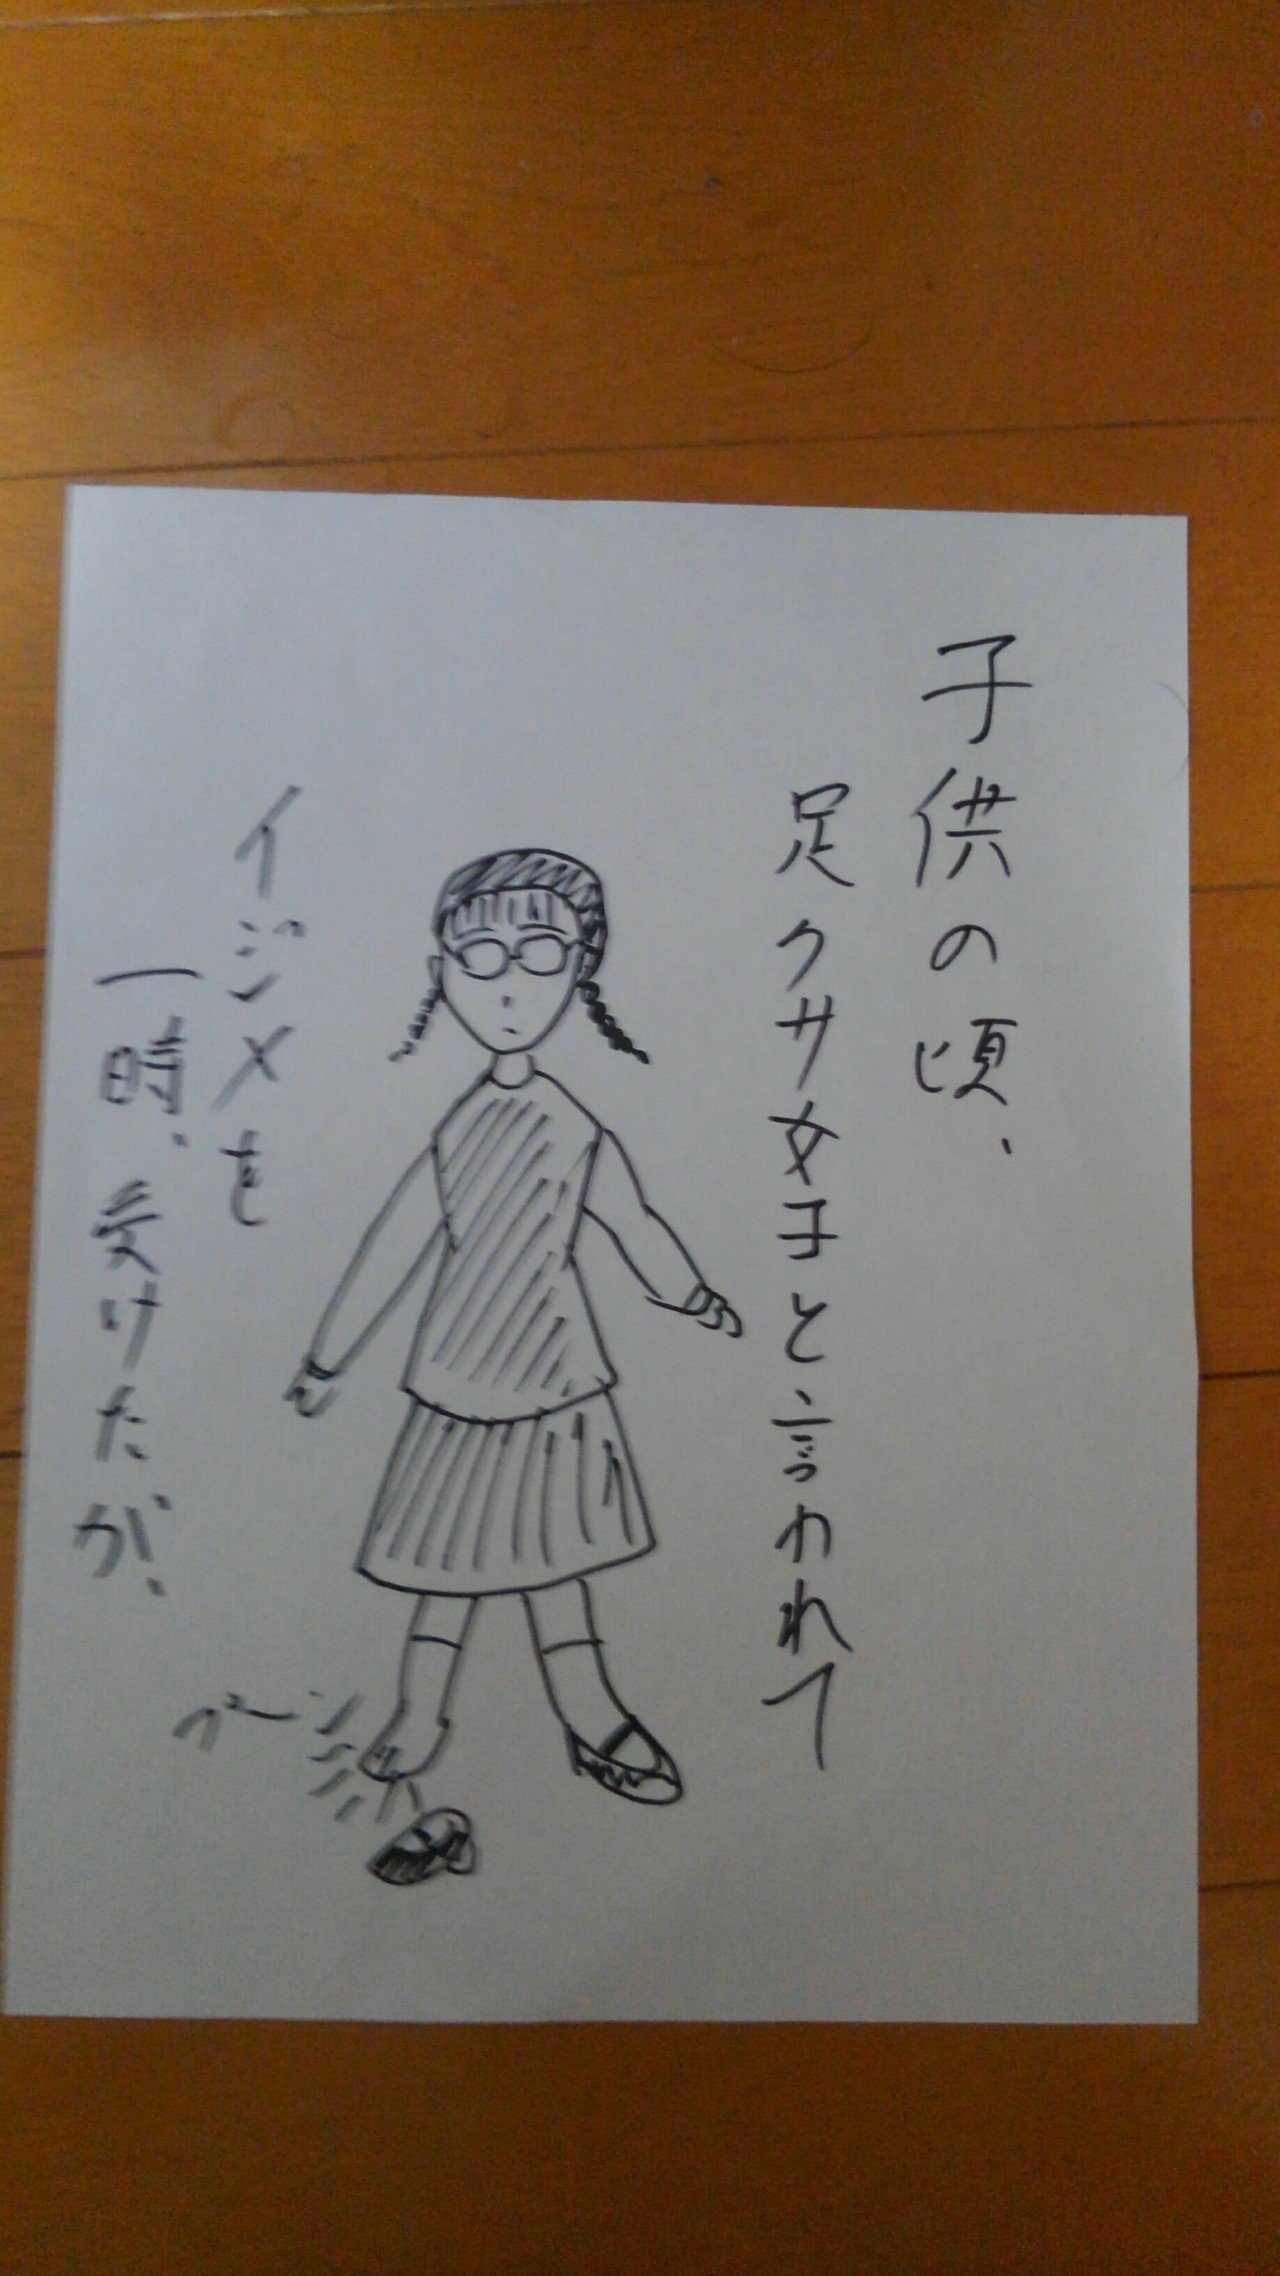 子供の頃、
足クサ女子と言われて
イジメを
一時、受けたが、
プーン